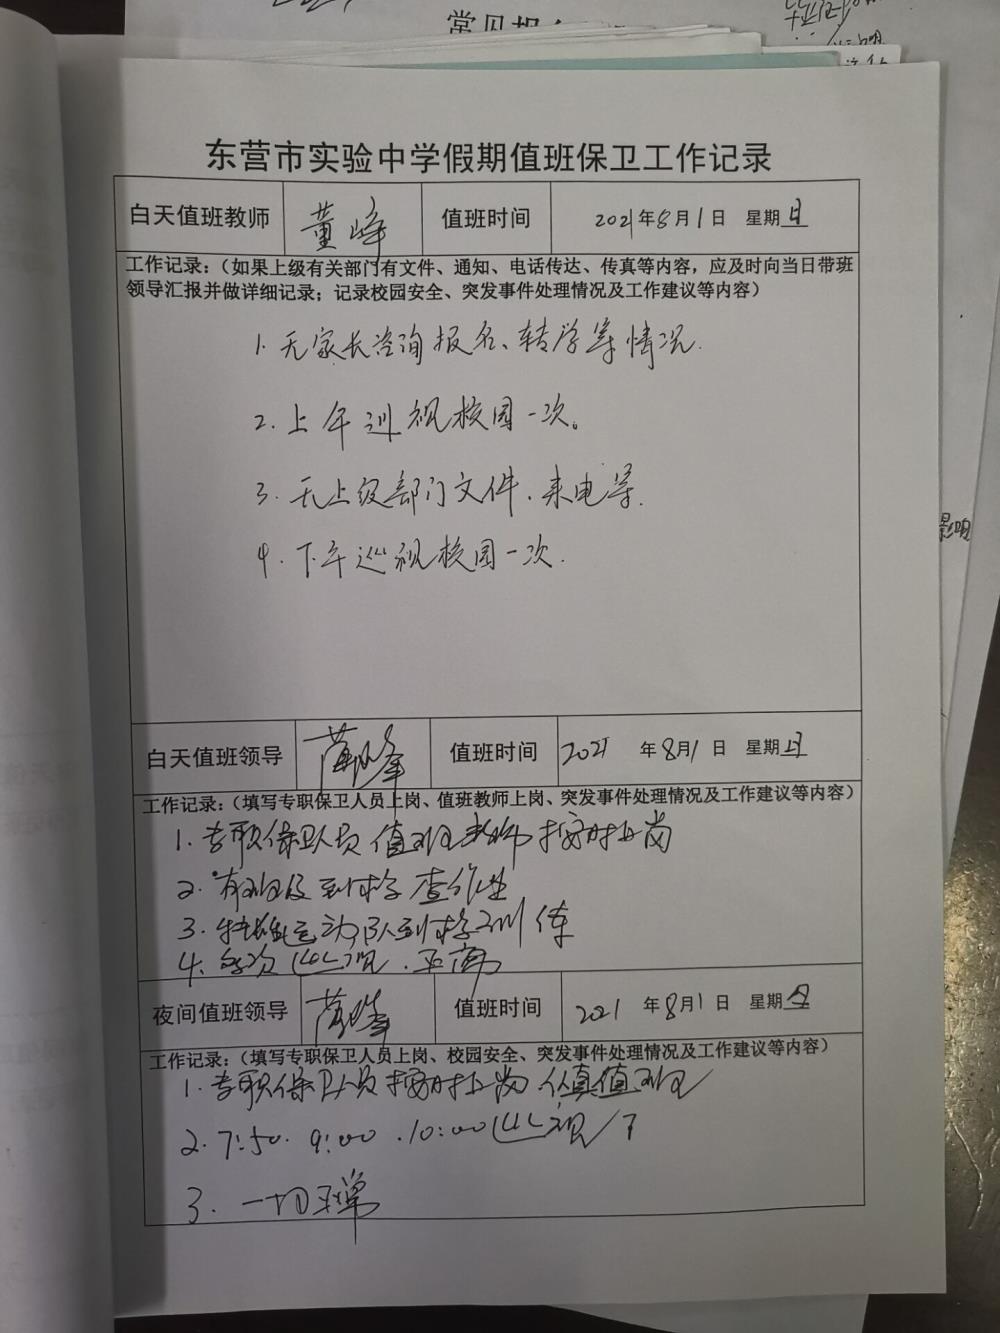 常见
东营市实验中学假期值班保卫工作记录
白天值班教师 董峰 值班时间 2021年8月1日 星期日
工作记录：（如果上级有关部门有文件、通知、电话传达、传真等内容，应及时向当日带班
领导汇报并做详细记录；记录校园安全、突发事件处理情况及工作建议等内容）
1. 无家长咨询报名、转学等情况.
2. 上午巡视校园一次。
3. 无上级部门文件、来电等.
4. 下午巡视校园一次.
白天值班领导 峰 值班时间 2021 年8月1日 星期日
工作记录：（填写专职保卫人员上岗、值班教师上岗、突发事件处理情况及工作建议等内容）
1. 专职保卫人员 值班教师按时上岗
2. 有班级到校查作业
3. 运动队到校训练
4. 巡视.
夜间值班领导 峰 值班时间 2021 年8月1日 星期日
工作记录：（填写专职保卫人员上岗、校园安全、突发事件处理情况及工作建议等内容）
1. 专职保卫人员按时上岗 认真值班
2. 7:50. 9:00 .10:00巡视了
3. 一切正常
影响